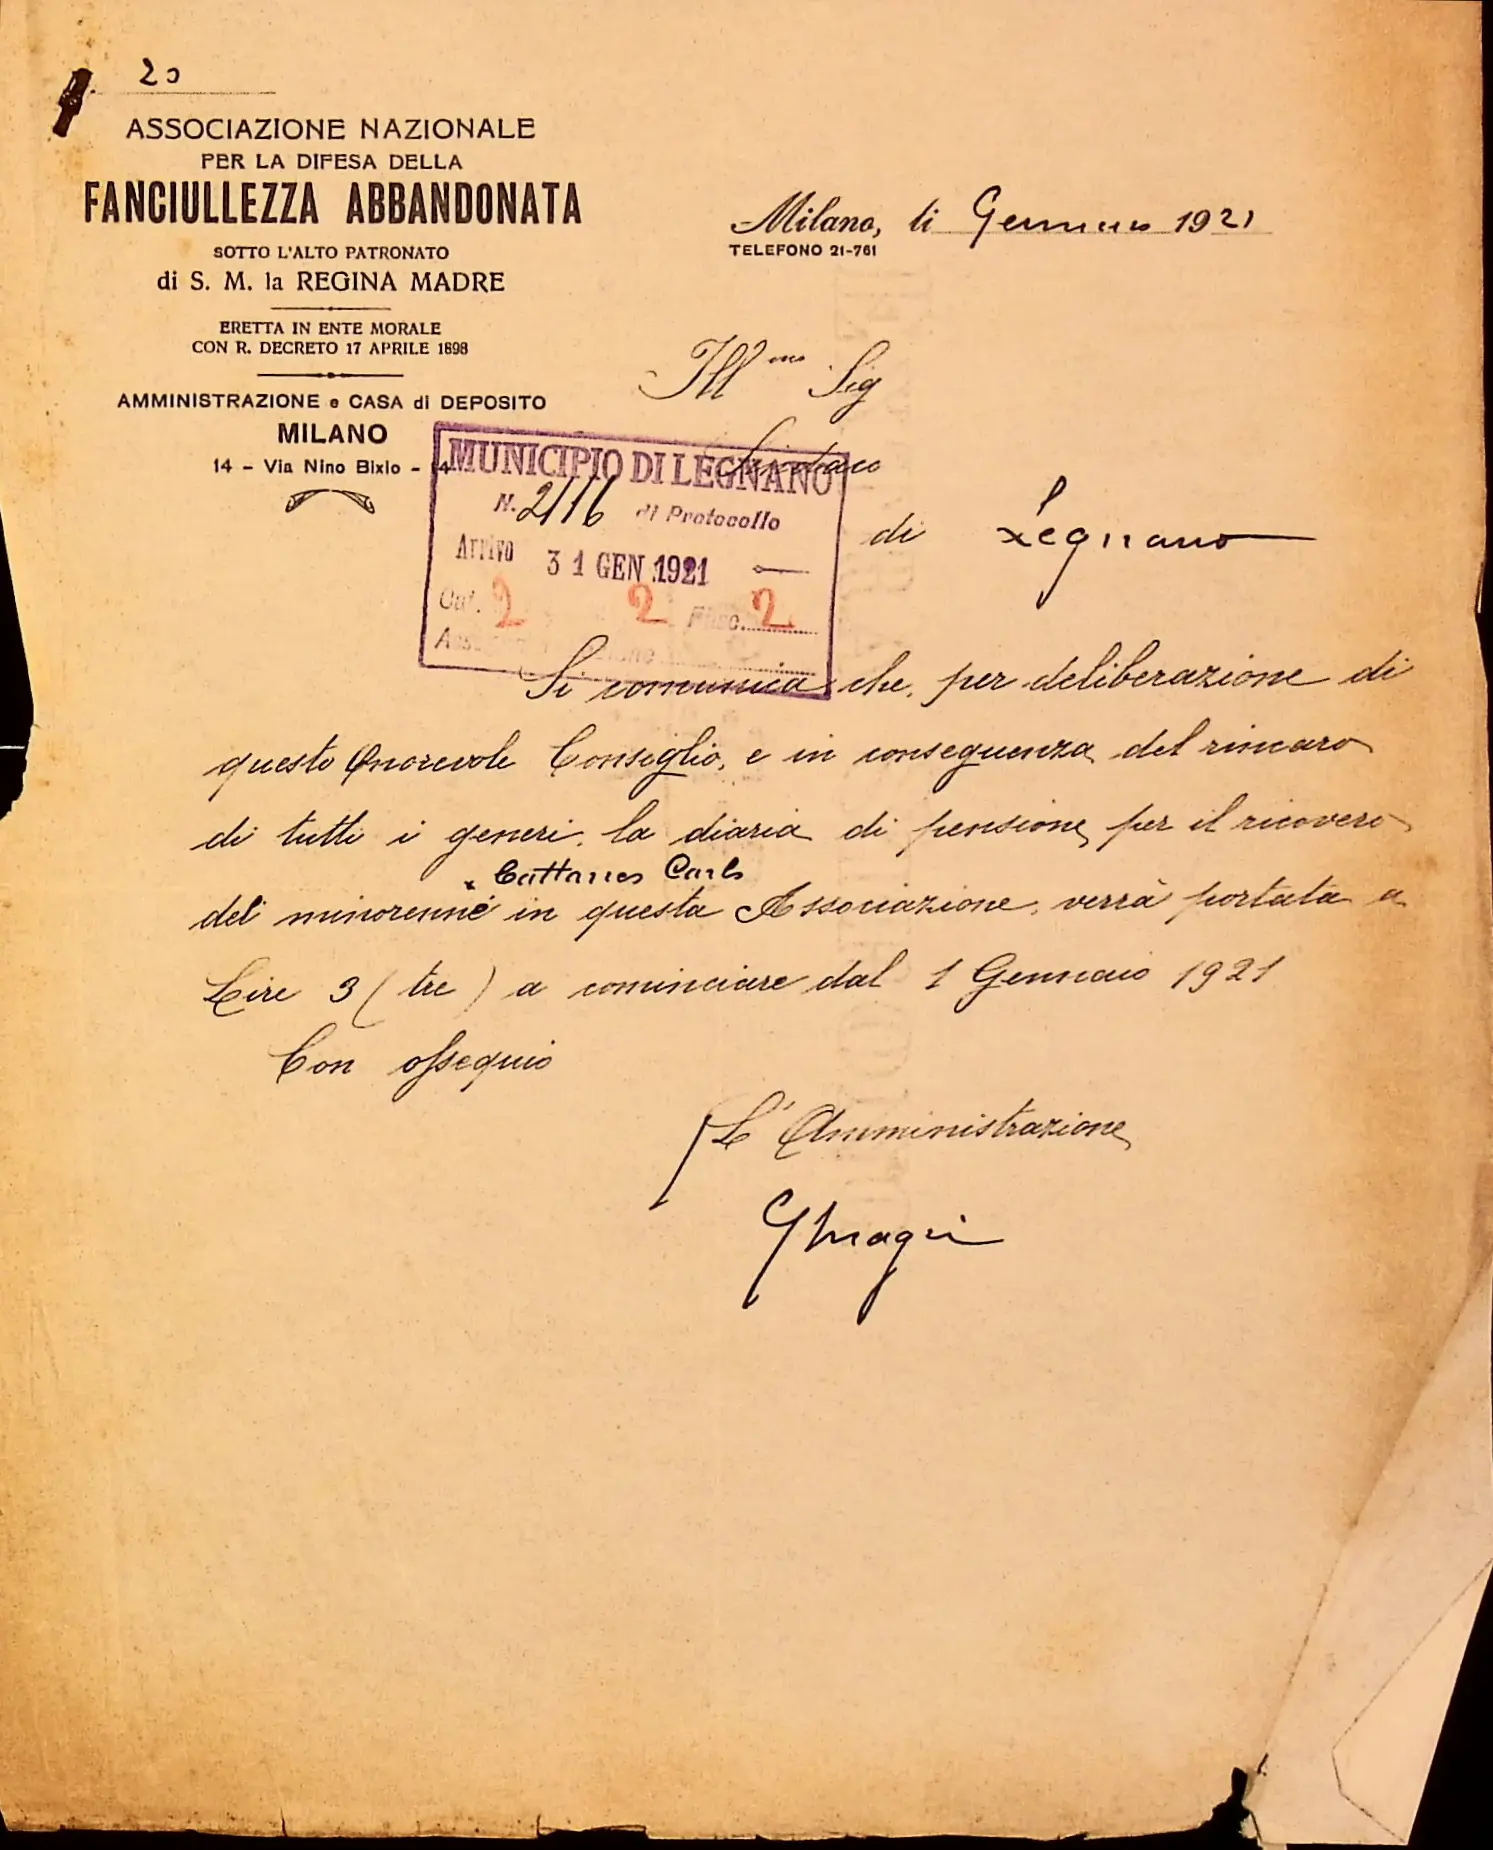 20
ASSOCIAZIONE NAZIONALE
PER LA DIFESA DELLA
FANCIULLEZZA ABBANDONATA
SOTTO L'ALTO PATRONATO
di S. M. la REGINA MADRE
ERETTA IN ENTE MORALE
CON R. DECRETO 17 APRILE 1898
AMMINISTRAZIONE e CASA di DEPOSITO
MILANO
14 - Via Nino Bixio - 14
Milano, li Gennaio 1921
TELEFONO 21-761
Ill.mo Sig
Sindaco
di Legnano
MUNICIPIO DI LEGNANO
N. 2116 di Protocollo
Arrivo 31 GEN 1921
Cat. 2 2 Fasc. 2
Si comunica che, per deliberazione di
questo Onorevole Consiglio, e in conseguenza del rincaro
di tutti i generi, la diaria di pensione per il ricovero
Cattaneo Carlo
del minorenne in questa Associazione, verrà portata a
Lire 3 (tre) a cominciare dal 1 Gennaio 1921
Con ossequio
L'Amministrazione